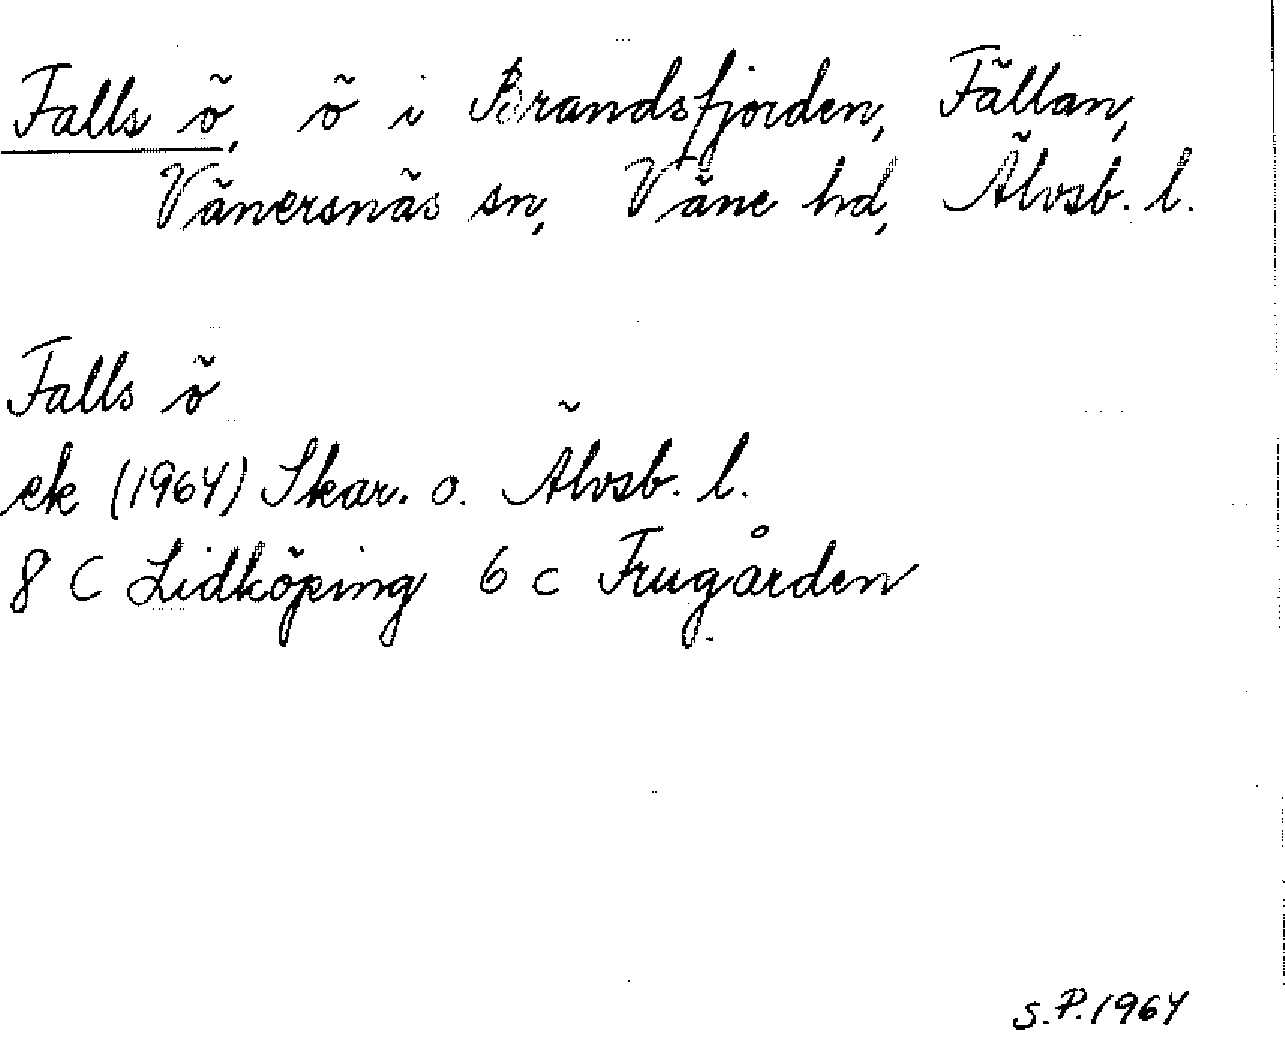 Falls ö, ö i Brandsfjorden, Fällan,
Vänersnäs sn, Väne hd, Älvsb. l.
Falls ö
ek (1964) Skar. o. Älvsb. l.
8 C Lidköping 6 c Frugården
S.P. 1964